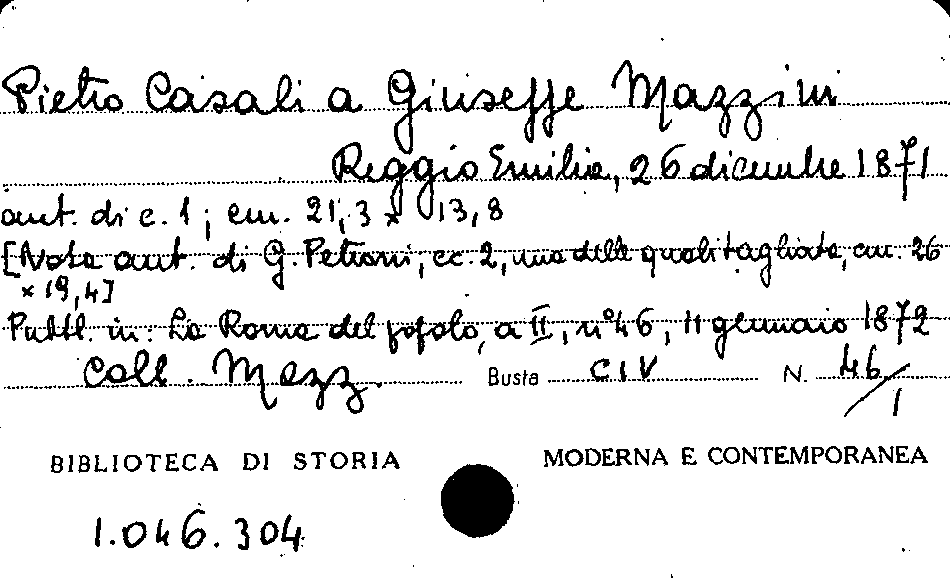 Pietro Casali a Giuseppe Mazzini
Reggio Emilia, 26 dicembre 1871
aut. di c. 1; cm. 21,3 x 13,8
[Nota aut. di G. Petroni, cc. 2, una delle quali tagliata, cm. 26
x 19,4]
Pubbl. in: La Roma del popolo, a II, n° 46, 11 gennaio 1872
Coll. Mazz. Busta CIV N. 46/1
BIBLIOTECA DI STORIA MODERNA E CONTEMPORANEA
1.046.304